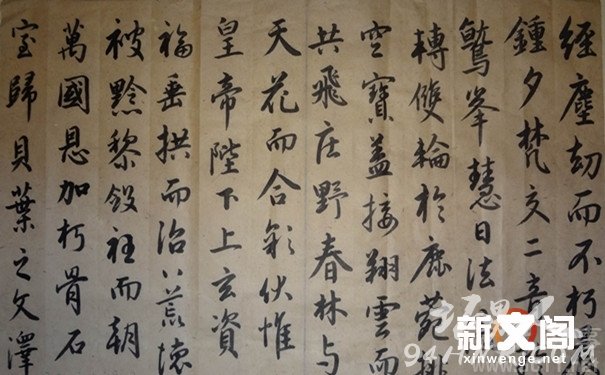 經塵劫而不朽
鍾夕梵交二音
鷲峯慧日法
轉雙輪於鹿菀排
空寶蓋接翔雲而
共飛庄野春林与
天花而合彩伏惟
皇帝陛下上玄資
福垂拱而治八荒德
被黔黎斂衽而朝
萬國恩加朽骨石
室歸貝葉之文澤
新文阁
xinwenge.net